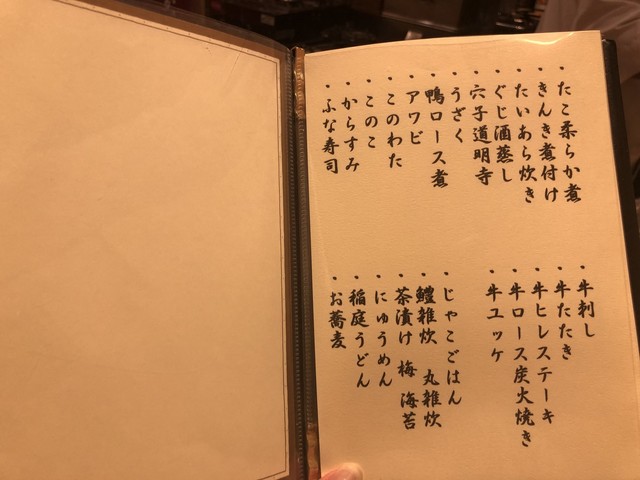 ・たこ柔らか煮
・きんき煮付け
・たいあら炊き
・ぐじ酒蒸し
・穴子道明寺
・うざく
・鴨ロース煮
・アワビ
・このわた
・このこ
・からすみ
・ふな寿司
・牛刺し
・牛たたき
・牛ヒレステーキ
・牛ロース炭火焼き
・牛ユッケ
・じゃこごはん
・鱧雑炊 丸雑炊
・茶漬け 梅 海苔
・にゅうめん
・稲庭うどん
・お蕎麦